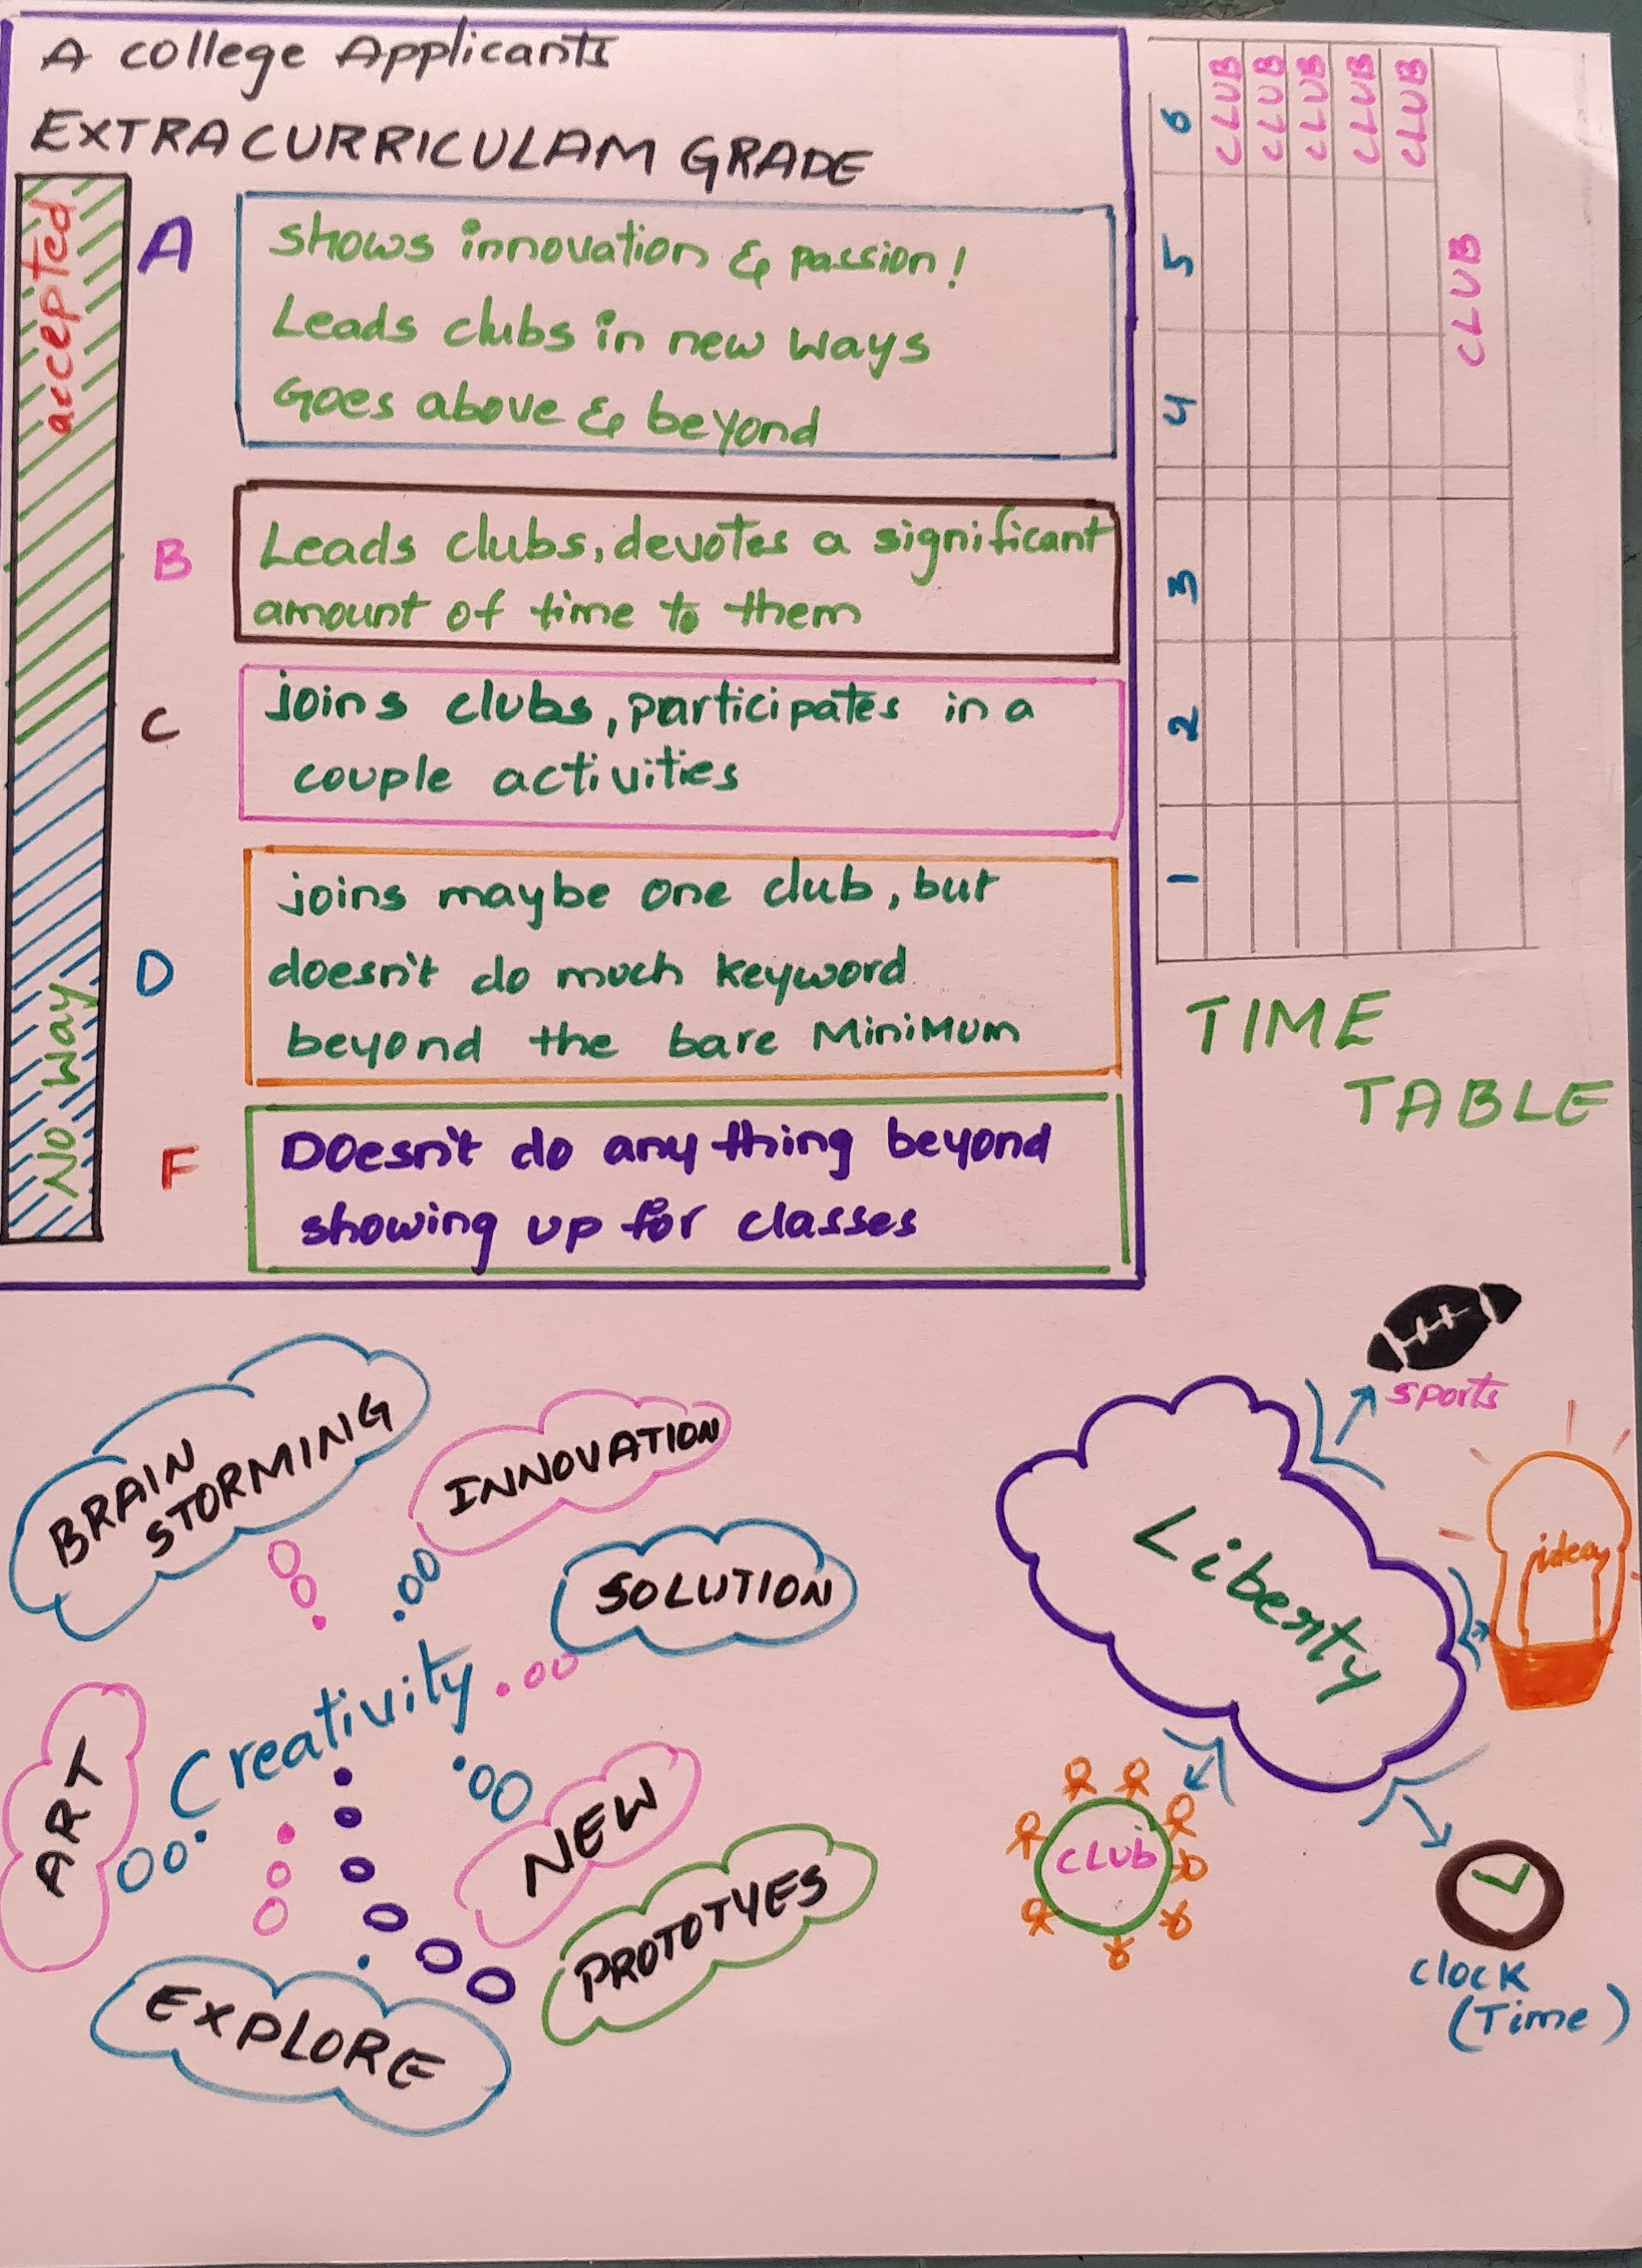 A college Applicants
EXTRACURRICULAM GRADE
accepted
No Way
A
shows innovation & passion!
Leads clubs in new ways
Goes above & beyond
B
Leads clubs, devotes a significant
amount of time to them
C
joins clubs, participates in a
couple activities
D
joins maybe one club, but
doesn't do much keyword
beyond the bare MiniMum
F
Doesn't do any thing beyond
showing up for classes
1 2 3 4 5 6
CLUB
CLUB
CLUB
CLUB
CLUB
CLUB
TIME
TABLE
BRAIN
STORMING
INNOVATION
SOLUTION
Creativity
ART
NEW
PROTOTYES
EXPLORE
Liberty
sports
ideas
CLUb
clock
(Time)